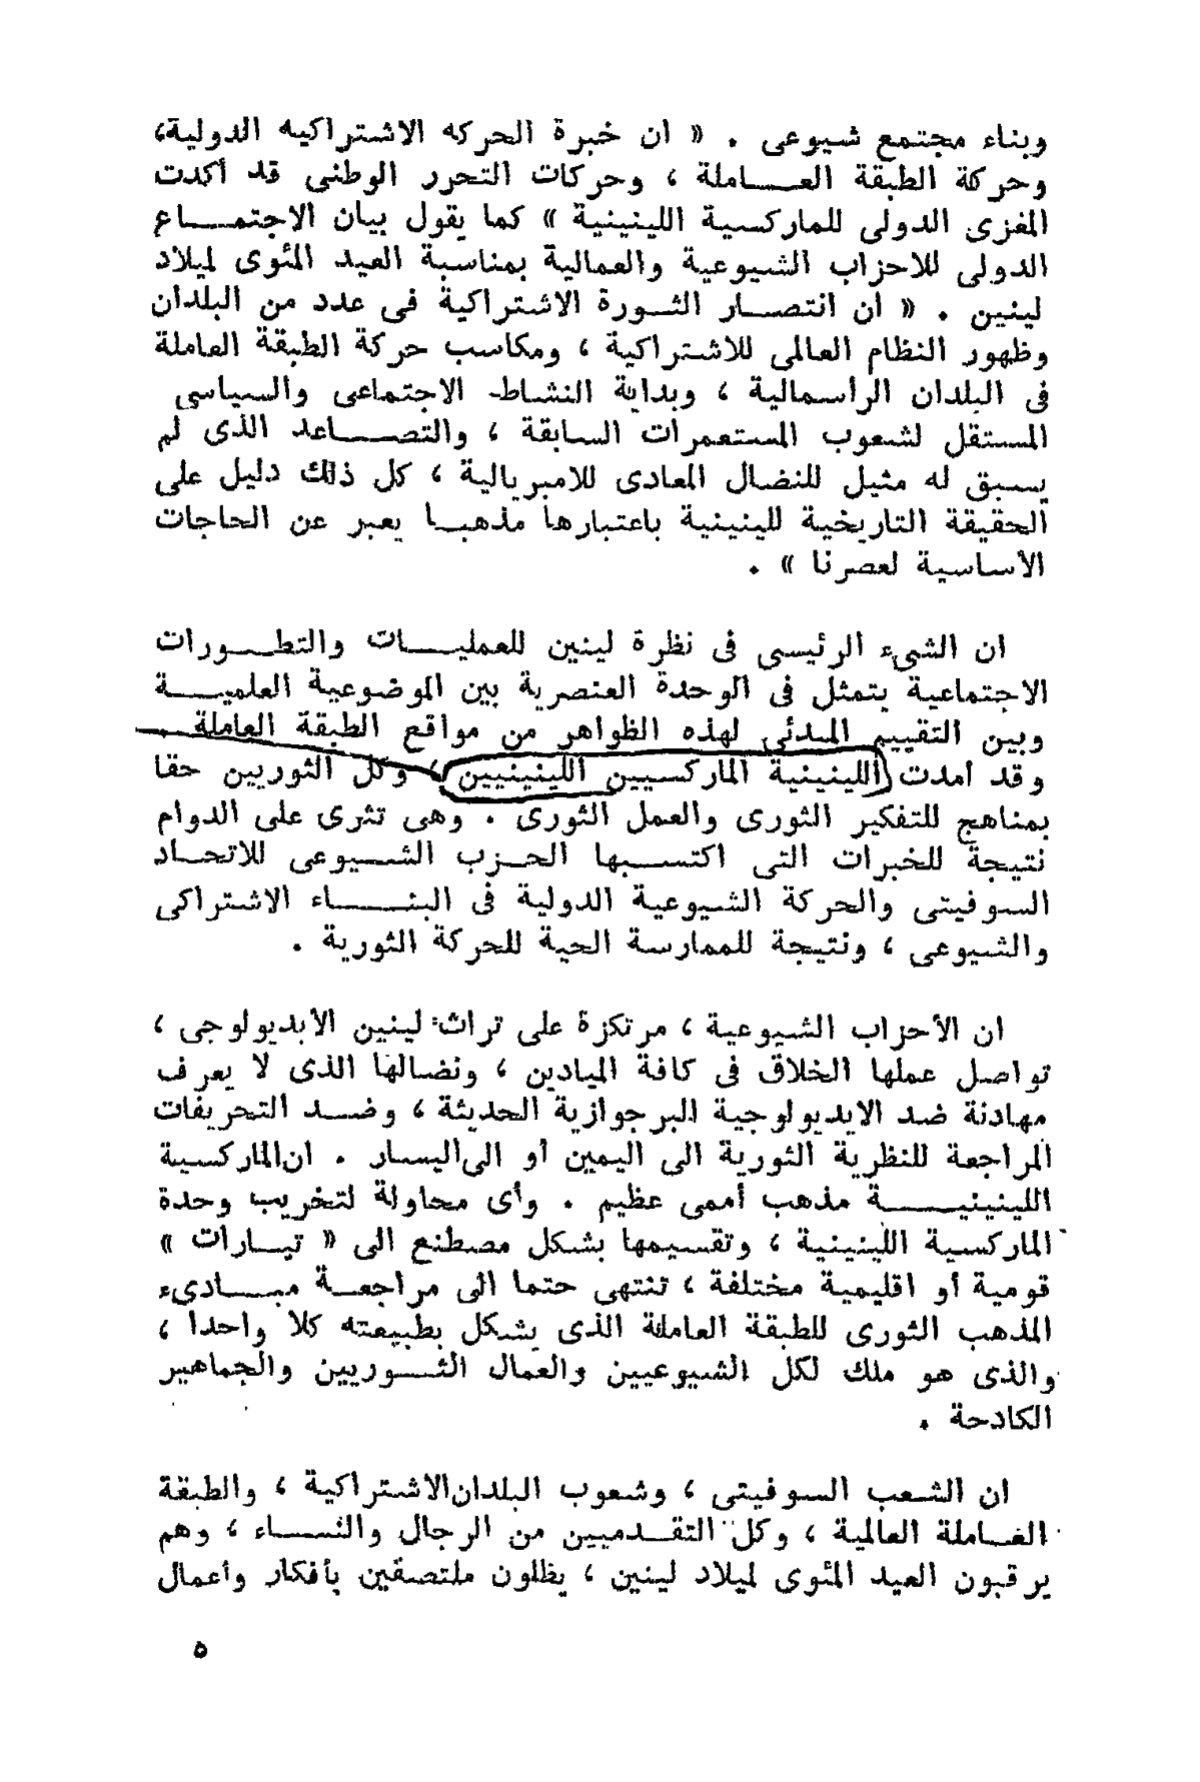 وبناء مجتمع شيوعى . « ان خبرة الحركه الاشتراكيه الدولية،
وحركة الطبقة العـــاملة ، وحركات التحرر الوطنى قد أكدت
المغزى الدولى للماركسية اللينينية » كما يقول بيان الاجتمـــاع
الدولى للاحزاب الشيوعية والعمالية بمناسبة العيد المئوى لميلاد
لينين . « ان انتصــار الثــورة الاشتراكية فى عدد من البلدان
وظهور النظام العالمى للاشتراكية ، ومكاسب حركة الطبقة العاملة
فى البلدان الرأسمالية ، وبداية النشاط الاجتماعى والسياسى
المستقل لشعوب المستعمرات السابقة ، والتصـــاعد الذى لم
يسبق له مثيل للنضال المعادى للامبريالية ، كل ذلك دليل على
الحقيقة التاريخية للينينية باعتبارها مذهبــا يعبر عن الحاجات
الأساسية لعصرنا » .
ان الشىء الرئيسى فى نظرة لينين للعمليــات والتطــورات
الاجتماعية يتمثل فى الوحدة العنصرية بين الموضوعية العلميــة
وبين التقييم المبدئى لهذه الظواهر من مواقع الطبقة العاملة .
وقد امدت اللينينية الماركسيين اللينينيين ، وكل الثوريين حقا
بمناهج للتفكير الثورى والعمل الثورى . وهى تثرى على الدوام
نتيجة للخبرات التى اكتســبها الحــزب الشــيوعى للاتحــاد
السوفيتى والحركة الشيوعية الدولية فى البنـــاء الاشتراكى
والشيوعى ، ونتيجة للممارسة الحية للحركة الثورية .
ان الأحزاب الشيوعية ، مرتكزة على تراث لينين الأبديولوجى ،
تواصل عملها الخلاق فى كافة الميادين ، ونضالها الذى لا يعرف
مهادنة ضد الايديولوجية البرجوازية الحديثة ، وضــد التحريفات
المراجعة للنظرية الثورية الى اليمين أو الى اليسار . ان الماركسية
اللينينيـــة مذهب أممى عظيم . وأى محاولة لتخريب وحدة
الماركسية اللينينية ، وتقسيمها بشكل مصطنع الى « تيــارات »
قومية أو اقليمية مختلفة ، تنتهى حتما الى مراجعــة مبــادىء
المذهب الثورى للطبقة العاملة الذى يشكل بطبيعته كلا واحدا ،
والذى هو ملك لكل الشيوعيين والعمال الثــوريين والجماهير
الكادحة .
ان الشعب السوفيتى ، وشعوب البلدان الاشتراكية ، والطبقة
العــاملة العالمية ، وكل التقــدميين من الرجال والنســاء ، وهم
يرقبون العيد المئوى لميلاد لينين ، يظلون ملتصقين بأفكار وأعمال
٥